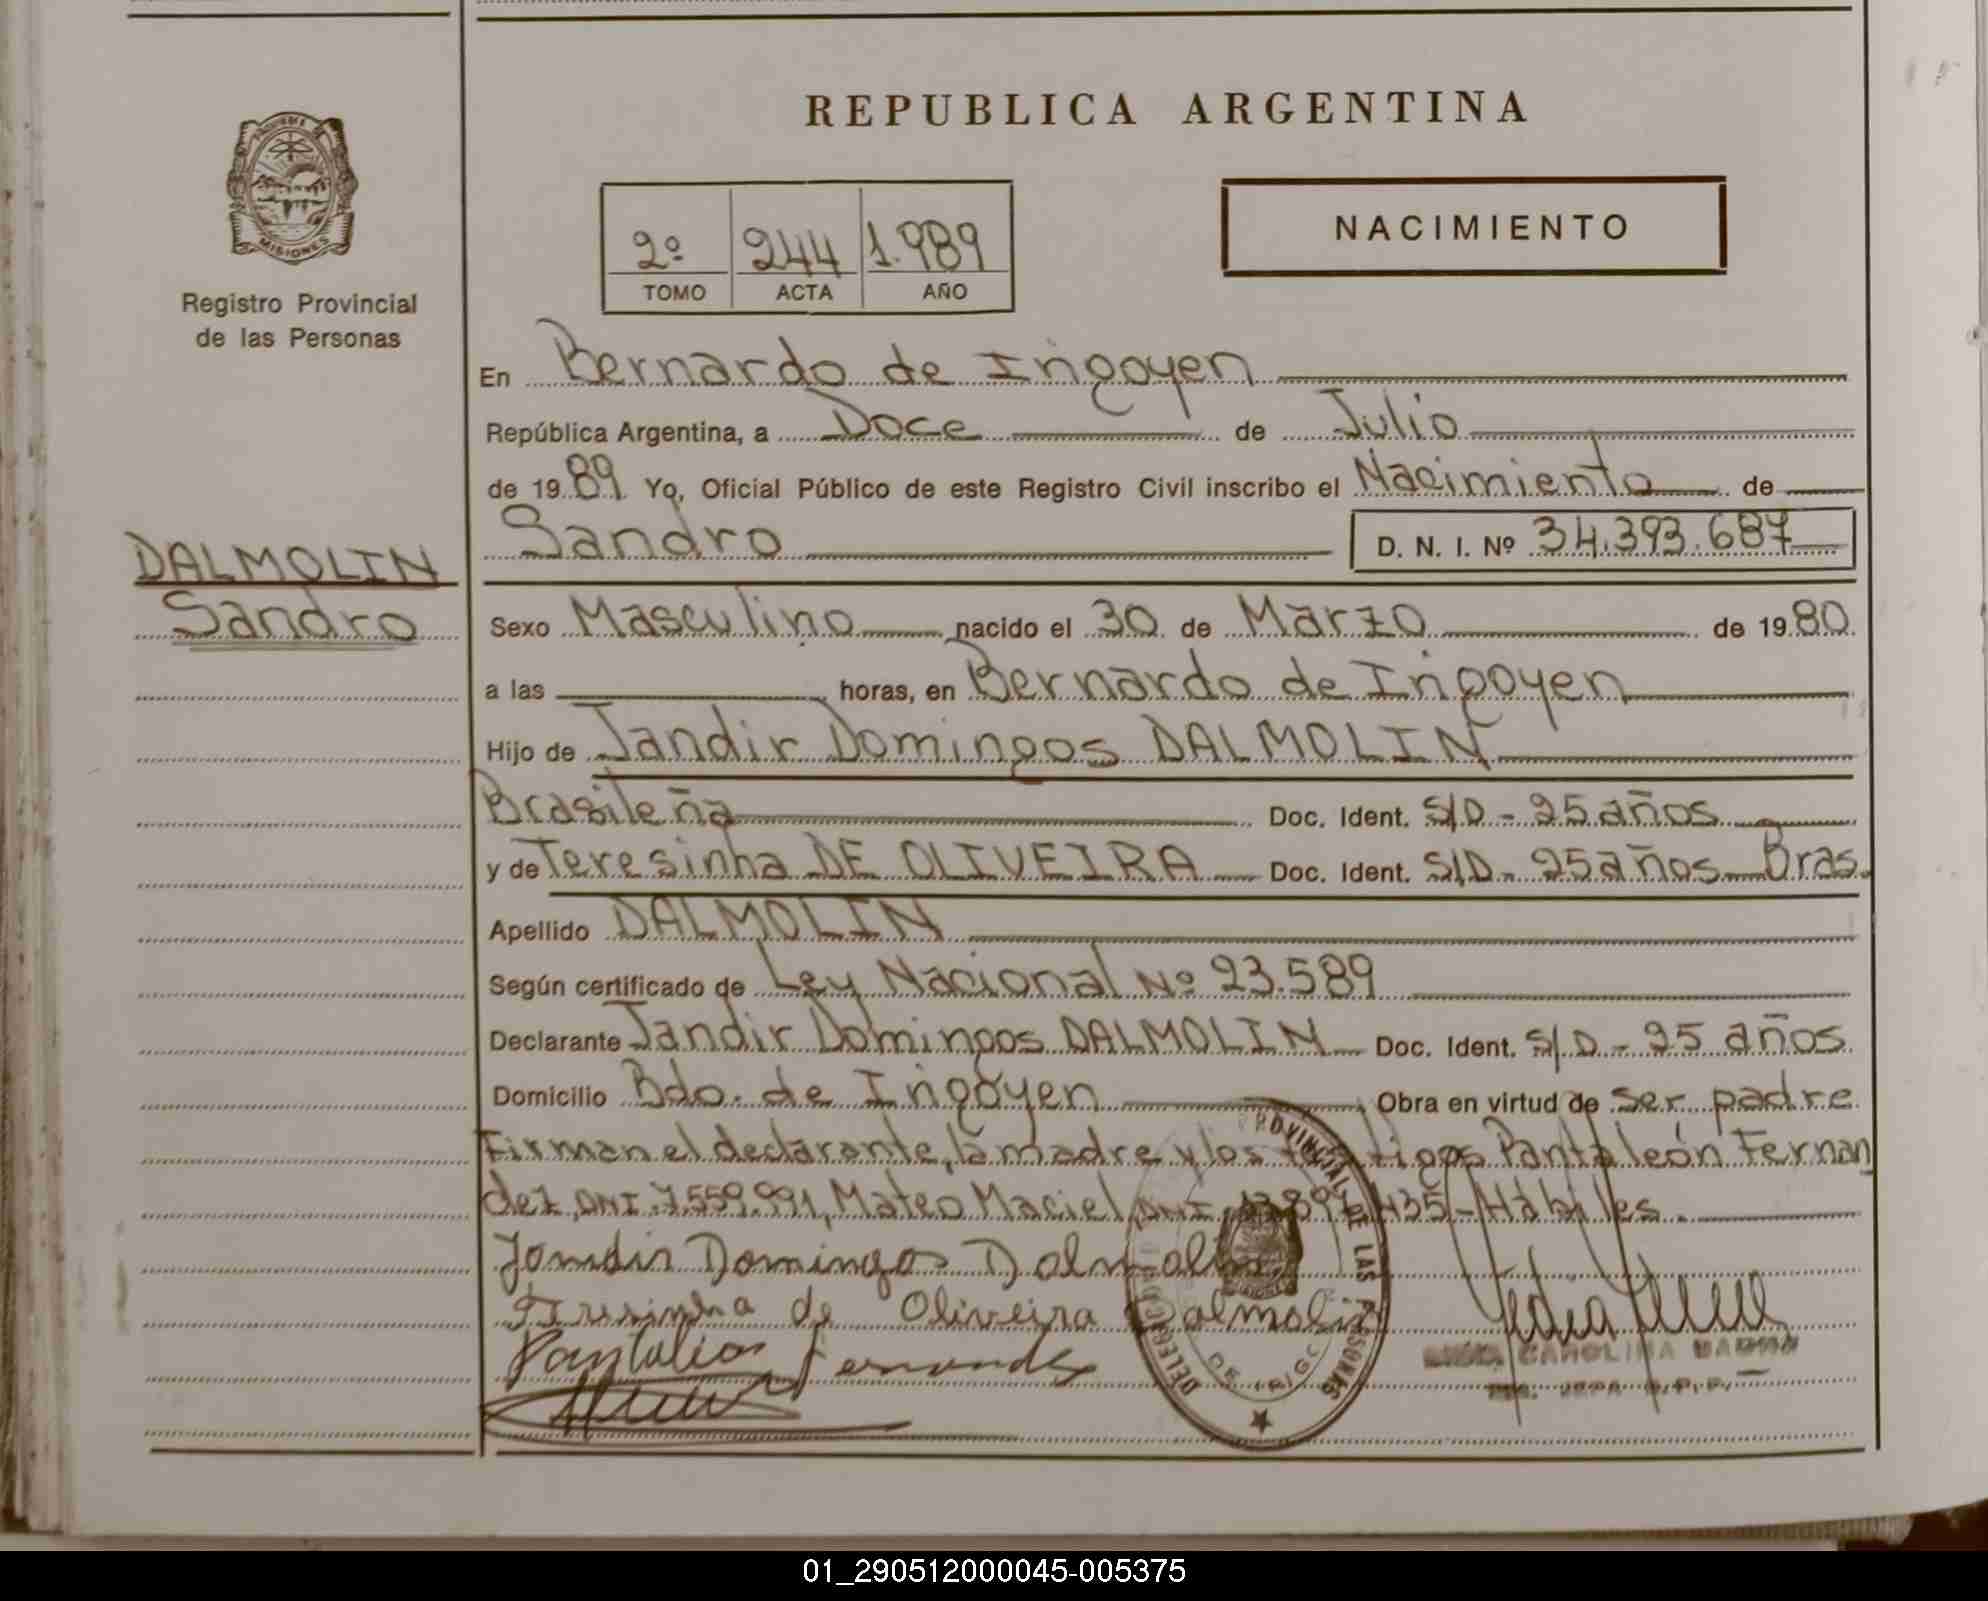 REPUBLICA ARGENTINA
PROVINCIA DE MISIONES
Registro Provincial
de las Personas
2º 244 1.989
TOMO ACTA AÑO
NACIMIENTO
En Bernardo de Irigoyen
República Argentina, a Doce de Julio
de 1989 Yo, Oficial Público de este Registro Civil inscribo el Nacimiento de
Sandro D. N. I. Nº 34.393.687
DALMOLIN
Sandro
Sexo Masculino nacido el 30 de Marzo de 1980
a las horas, en Bernardo de Irigoyen
Hijo de Jandir Domingos DALMOLIN
Brasileña Doc. Ident. S/D - 25 años
y de Teresinha DE OLIVEIRA Doc. Ident. S/D - 25 años Bras.
Apellido DALMOLIN
Según certificado de Ley Nacional Nº 23.589
Declarante Jandir Domingos DALMOLIN Doc. Ident. S/D - 25 años
Domicilio Bdo. de Irigoyen Obra en virtud de ser padre
Firman el declarante, la madre y los testigos Pantaleón Fernan
dez, DNI. 7.559.991, Mateo Maciel, DNI. - Hábiles.
Jandir Domingos Dalmolin
Teresinha de Oliveira Dalmolin
Pantalion Fernandez
DELEGACION PROVINCIAL DE LAS PERSONAS
CAROLINA
01_290512000045-005375